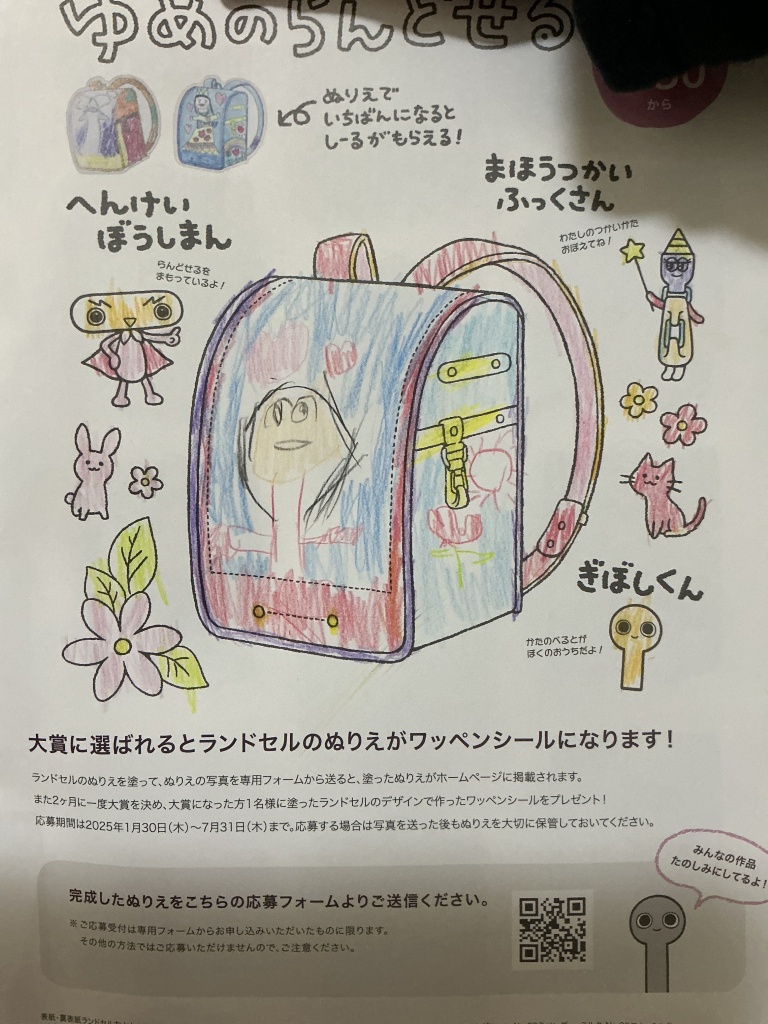 ゆめのらんどせる
から
ぬりえで
いちばんになると
しーるがもらえる!
まほうつかい
ふっくさん
わたしのつかいかた
おぼえてね!
へんけい
ぼうしまん
らんどせるを
まもっているよ!
ぎぼしくん
かたのべるとが
ぼくのおうちだよ!
大賞に選ばれるとランドセルのぬりえがワッペンシールになります!
ランドセルのぬりえを塗って、ぬりえの写真を専用フォームから送ると、塗ったぬりえがホームページに掲載されます。
また2ヶ月に一度大賞を決め、大賞になった方1名様に塗ったランドセルのデザインで作ったワッペンシールをプレゼント!
応募期間は2025年1月30日(木)〜7月31日(木)まで。応募する場合は写真を送った後もぬりえを大切に保管しておいてください。
みんなの作品
たのしみにしてるよ!
完成したぬりえをこちらの応募フォームよりご送信ください。
※ご応募受付は専用フォームからお申し込みいただいたものに限ります。
その他の方法ではご応募いただけませんので、ご注意ください。